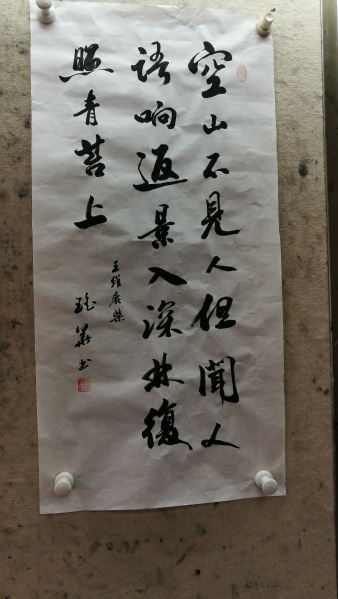 空山不見人但聞人
语响返景入深林復
照青苔上
王維鹿柴